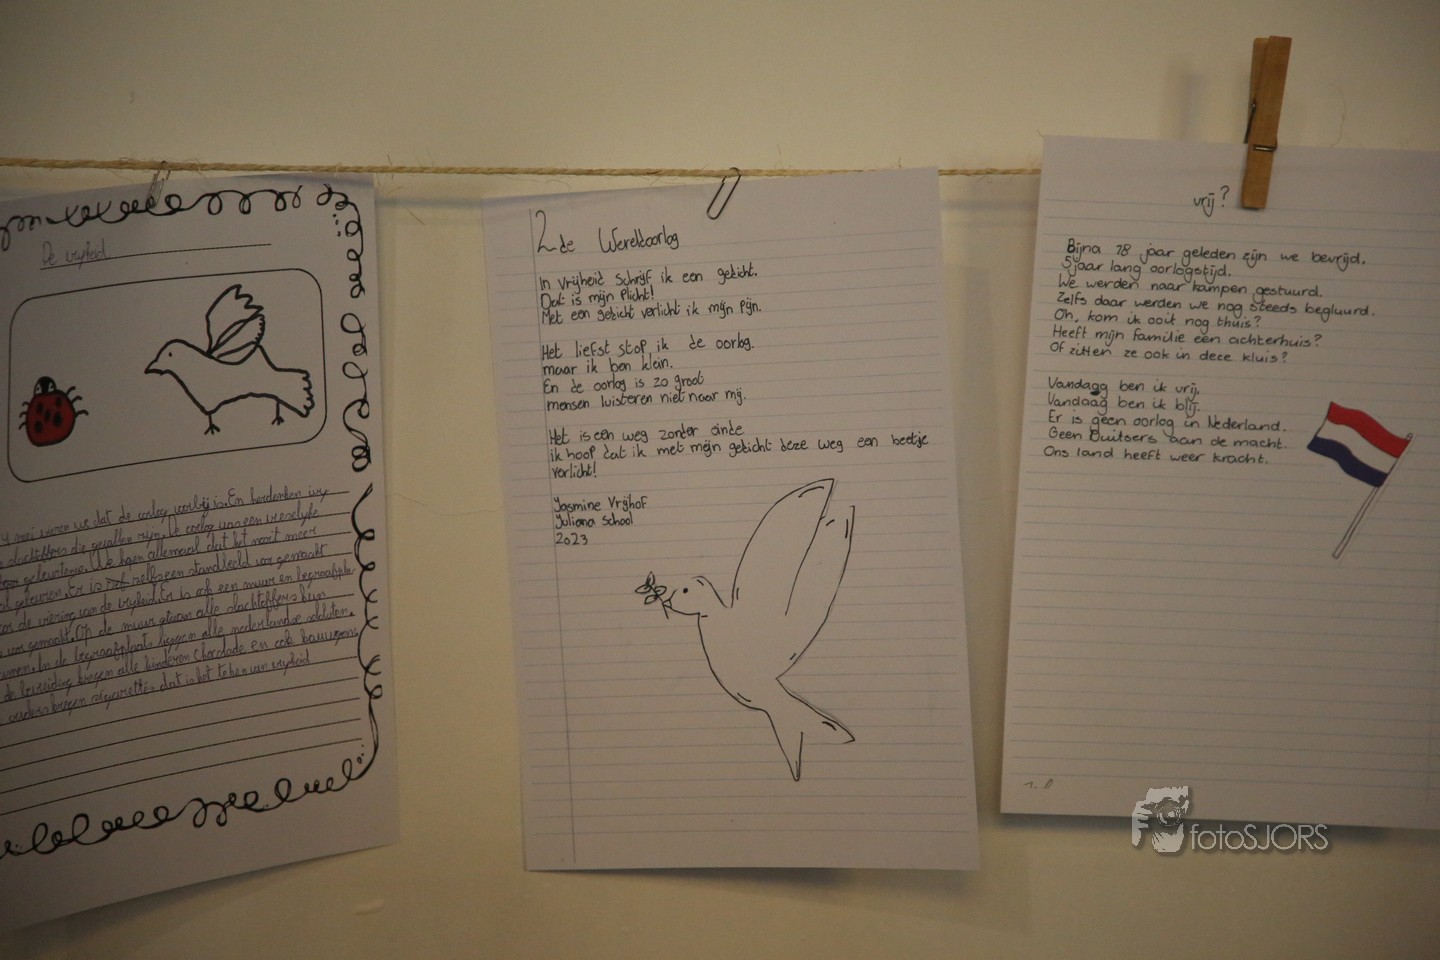 De vrijheid
4 mei vieren we dat de oorlog voorbij is. En herdenken wij
slachtoffers die gevallen zijn. De oorlog was een vreselijke
gebeurtenis. We hopen allemaal dat het nooit meer
gebeuren. Er is zelfs een standbeeld voor gemaakt
de viering van de vrijheid. Er is ook een muur en begraafpla
voor gemaakt. Op de muur staan alle slachtoffers hun
In de begraafplaats liggen alle nederlandse soldaten.
de bevrijding kregen alle kinderen chocolade en ook kauwgom
ouders kregen sigaretten dat is het teken van vrijheid
2de Wereldoorlog
In vrijheid schrijf ik een gedicht.
Dat is mijn plicht!
Met een gedicht verlicht ik mijn pijn.
Het liefst stop ik de oorlog.
maar ik ben klein.
En de oorlog is zo groot
mensen luisteren niet naar mij.
Het is een weg zonder einde
ik hoop dat ik met mijn gedicht deze weg een beetje
verlicht!
Yasmine Vrijhof
Juliana School
2023
vrij?
Bijna 78 jaar geleden zijn we bevrijd.
5 jaar lang oorlogstijd.
We werden naar kampen gestuurd.
Zelfs daar werden we nog steeds begluurd.
Oh, kom ik ooit nog thuis?
Heeft mijn familie een achterhuis?
Of zitten ze ook in deze kluis?
Vandaag ben ik vrij.
Vandaag ben ik blij.
Er is geen oorlog in Nederland.
Geen Duitsers aan de macht.
Ons land heeft weer kracht.
fotoSJORS